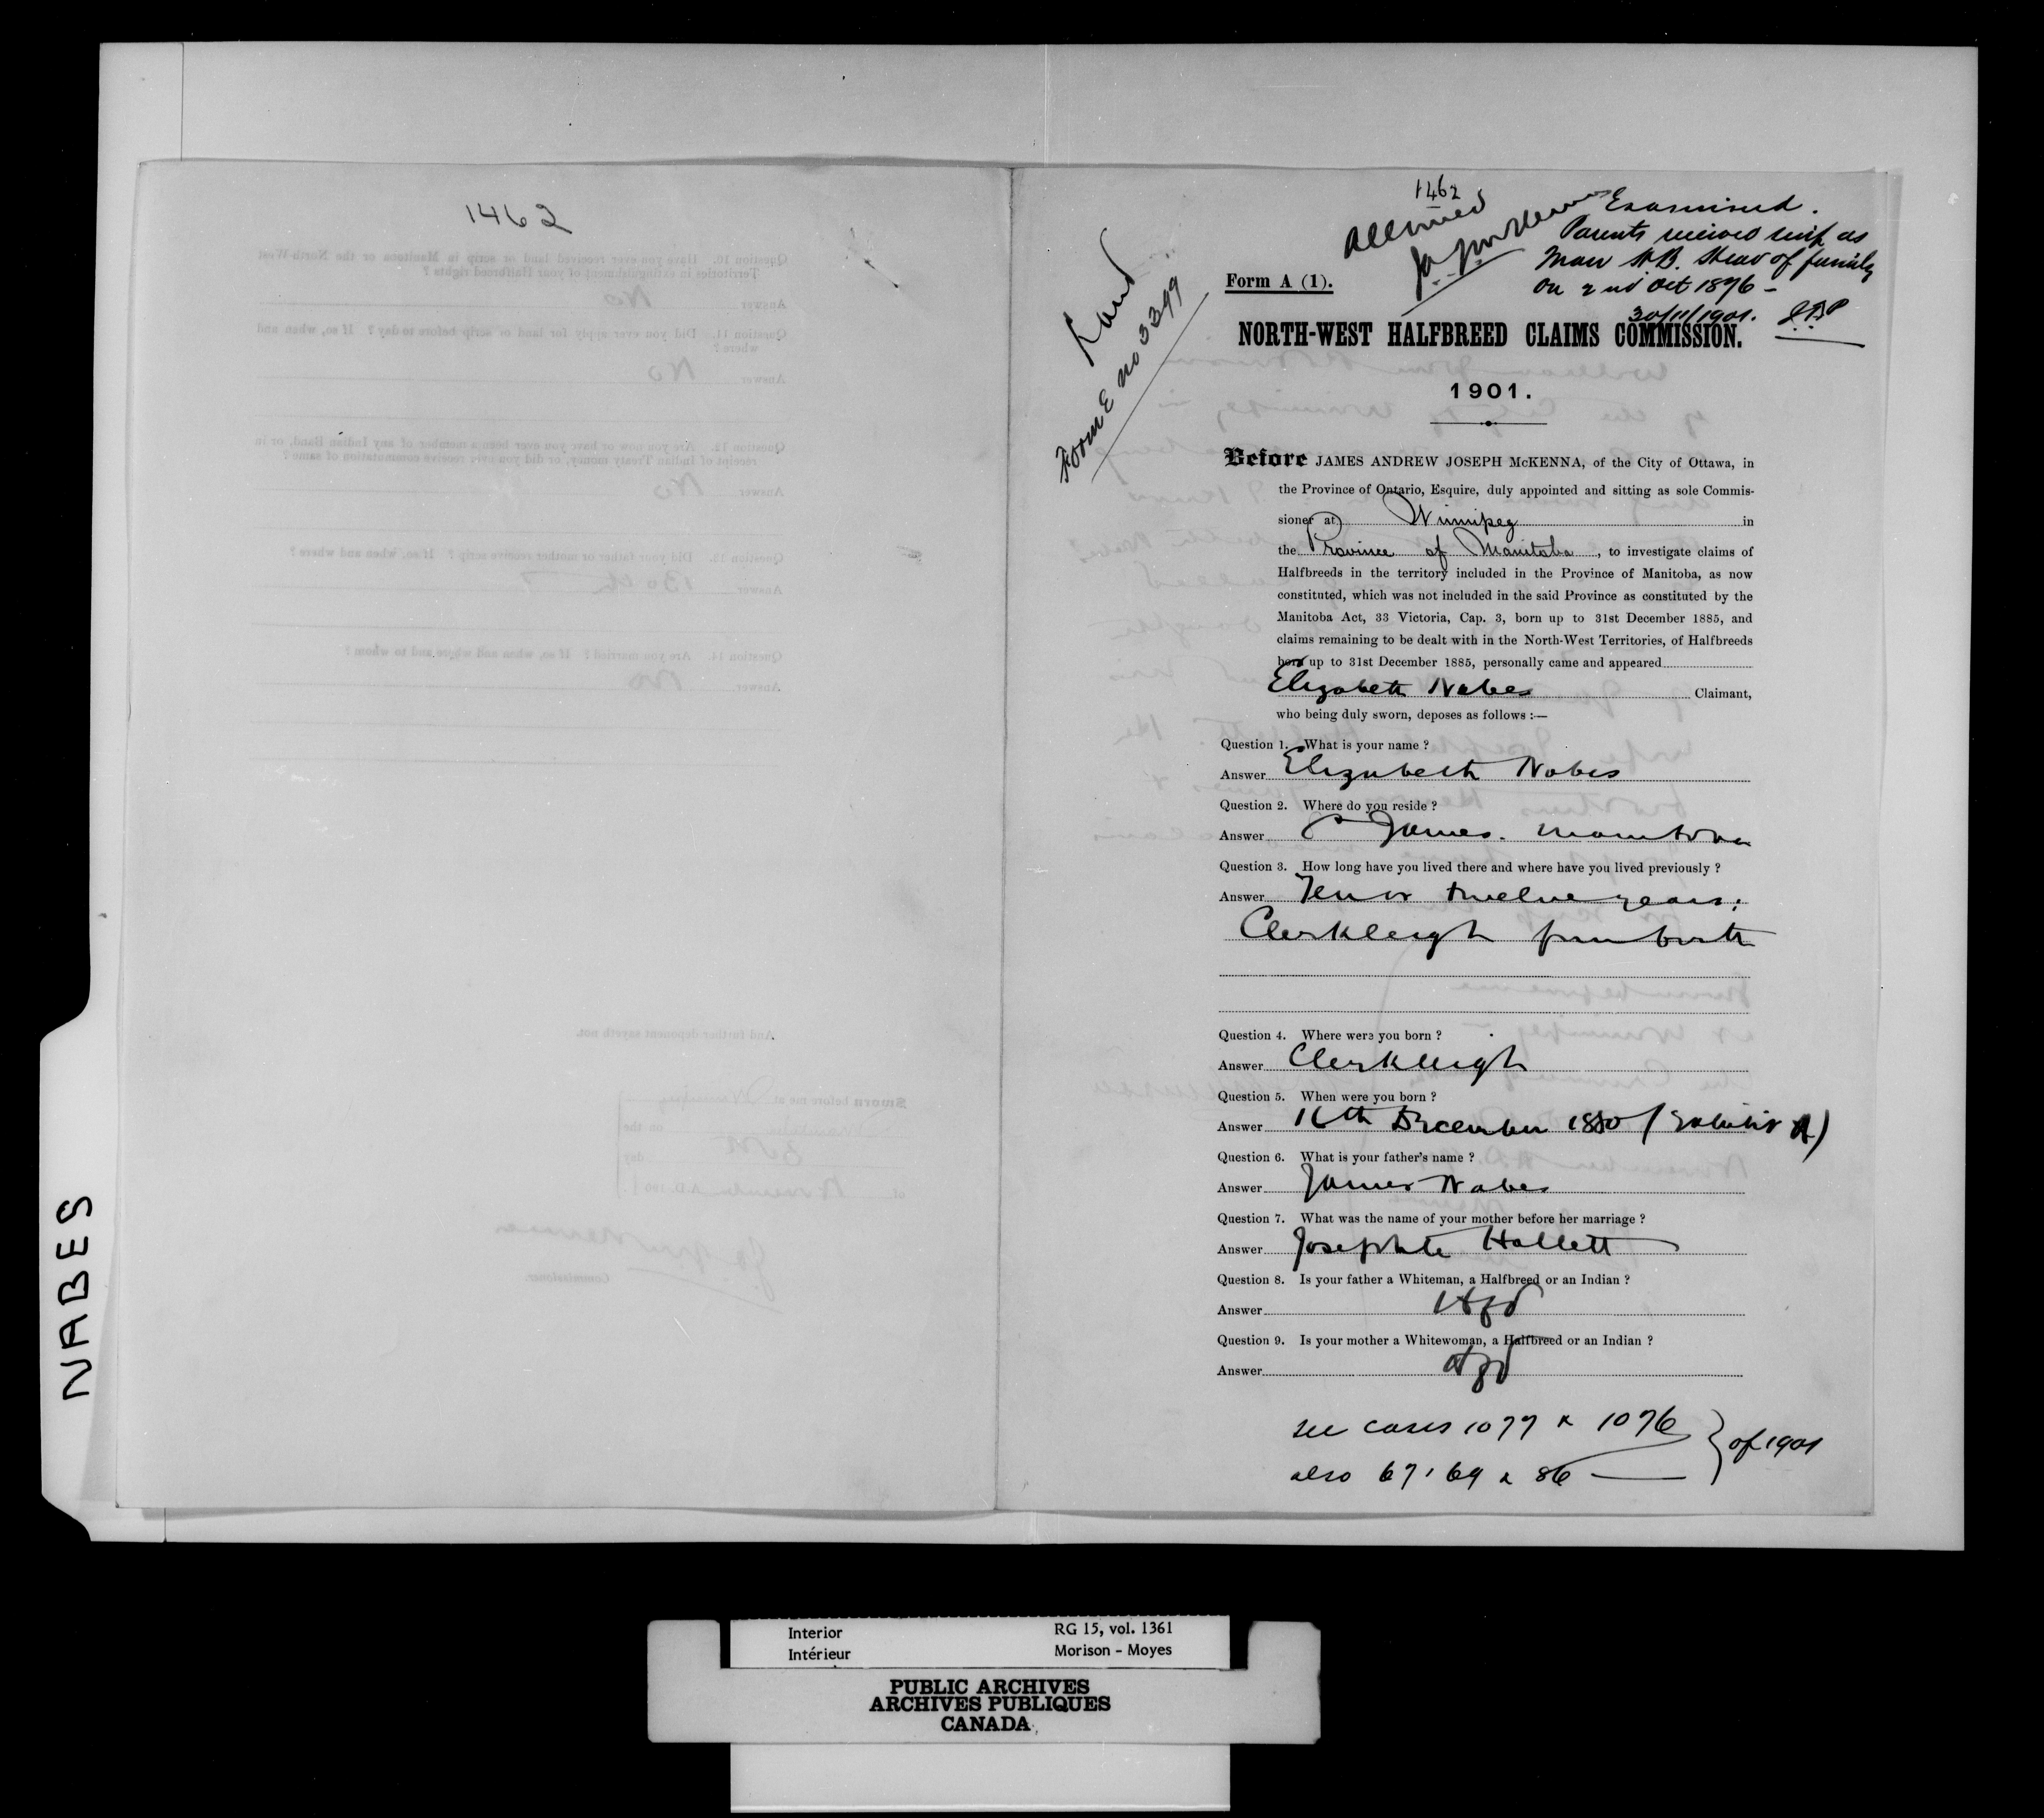 1462
NABES
1462
Allowed
J.A.J. McKenna
Examined.
Parents received scrip as
Man H.B. Head of family
on 2nd Oct 1876 -
30/11/1901.
Land
Form E no 3399
Form A (1).
NORTH-WEST HALFBREED CLAIMS COMMISSION.
1901.
Before JAMES ANDREW JOSEPH McKENNA, of the City of Ottawa, in
the Province of Ontario, Esquire, duly appointed and sitting as sole Commis-
sioner at Winnipeg in
the Province of Manitoba, to investigate claims of
Halfbreeds in the territory included in the Province of Manitoba, as now
constituted, which was not included in the said Province as constituted by the
Manitoba Act, 33 Victoria, Cap. 3, born up to 31st December 1885, and
claims remaining to be dealt with in the North-West Territories, of Halfbreeds
born up to 31st December 1885, personally came and appeared
Elizabeth Nabes Claimant,
who being duly sworn, deposes as follows :—
Question 1. What is your name ?
Answer Elizabeth Nabes
Question 2. Where do you reside ?
Answer St James. Manitoba
Question 3. How long have you lived there and where have you lived previously ?
Answer Ten or twelve years;
Clerkleigh from birth
Question 4. Where were you born ?
Answer Clerkleigh
Question 5. When were you born ?
Answer 16th December 1880 (Exhibit A)
Question 6. What is your father's name ?
Answer James Nabes
Question 7. What was the name of your mother before her marriage ?
Answer Josephte Hallett
Question 8. Is your father a Whiteman, a Halfbreed or an Indian ?
Answer Hfd
Question 9. Is your mother a Whitewoman, a Halfbreed or an Indian ?
Answer Hfd
see cases 1077 & 1076
also 67, 69 & 86
of 1901
Interior
Intérieur
RG 15, vol. 1361
Morison - Moyes
PUBLIC ARCHIVES
ARCHIVES PUBLIQUES
CANADA